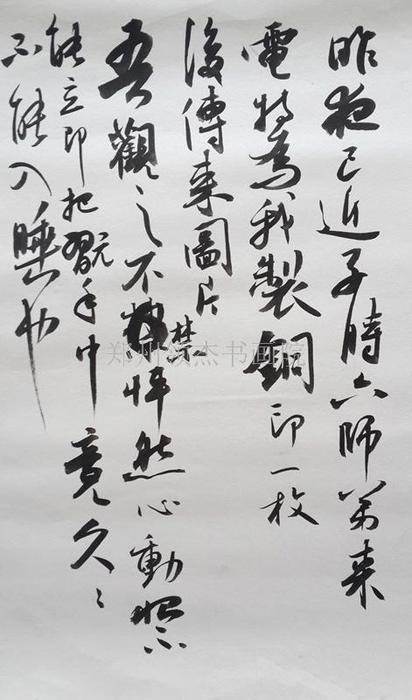 昨夜已近子時六師弟来
電特為我製銅印一枚
後傳来圖片
吾觀之不禁怦然心動恨不
能立即把翫手中竟久々
不能入睡也
郑州杰书画院